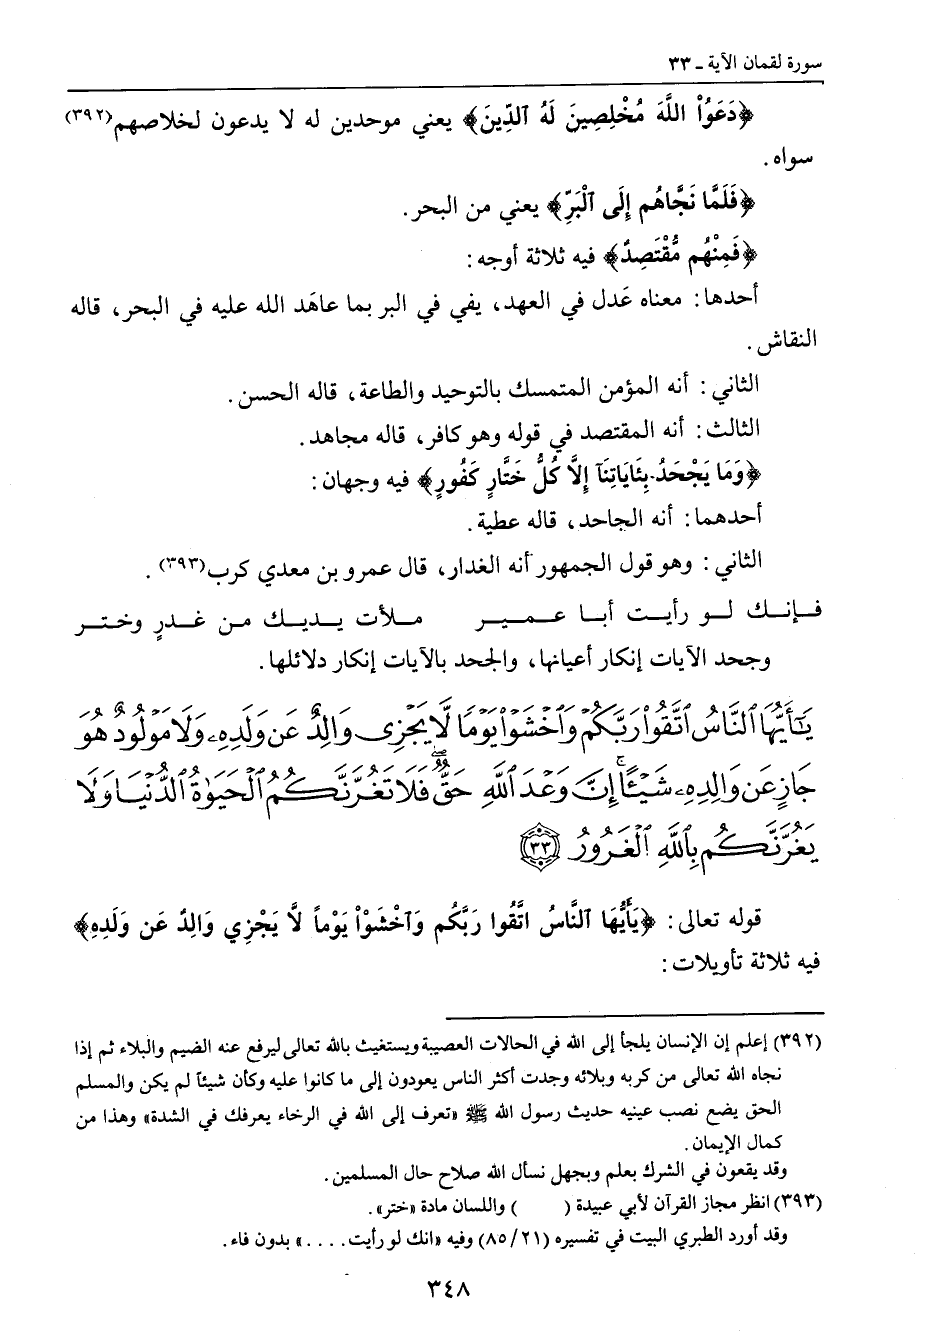 سورة لقمان الآية ـ ٣٣
﴿دَعَوُاْ اللَّهَ مُخْلِصِينَ لَهُ ٱلدِّينَ﴾ يعني موحدين له لا يدعون لخلاصهم(٣٩٢)
سواه .
﴿فَلَمَّا نَجَّاهُم إِلَى ٱلْبَرِّ﴾ يعني من البحر.
﴿فَمِنْهُم مُّقْتَصِدٌ﴾ فيه ثلاثة أوجه :
أحدها: معناه عَدل في العهد، يفي في البر بما عاهَد الله عليه في البحر، قاله
النقاش .
الثاني : أنه المؤمن المتمسك بالتوحيد والطاعة، قاله الحسن .
الثالث: أنه المقتصد في قوله وهو كافر، قاله مجاهد .
﴿وَمَا يَجْحَدُ بِئَايَاتِنَآ إِلَّا كُلُّ خَتَّارٍ كَفُورٍ﴾ فيه وجهان :
أحدهما: أنه الجاحد، قاله عطية .
الثاني : وهو قول الجمهور أنه الغدار، قال عمرو بن معدي كرب(٣٩٣) .
فـإنـك لـو رأيـت أبـا عـمـيـر مـلأت يـديـك مـن غـدرٍ وخـتـر
وجحد الآيات إنكار أعيانها، والجحد بالآيات إنكار دلائلها.
يَٰٓأَيُّهَا ٱلنَّاسُ ٱتَّقُواْ رَبَّكُمْ وَٱخْشَوْاْ يَوْمًا لَّا يَجْزِى وَالِدٌ عَن وَلَدِهِۦ وَلَا مَوْلُودٌ هُوَ
جَازٍ عَن وَالِدِهِۦ شَيْـًٔا إِنَّ وَعْدَ ٱللَّهِ حَقٌّ فَلَا تَغُرَّنَّكُمُ ٱلْحَيَوٰةُ ٱلدُّنْيَا وَلَا
يَغُرَّنَّكُم بِٱللَّهِ ٱلْغَرُورُ ٣٣
قوله تعالى: ﴿يَأَيُّهَا ٱلنَّاسُ اتَّقُوا رَبَّكُم وَٱخْشَوْاْ يَوْماً لَّا يَجْزِي وَالِدٌ عَن وَلَدِهِ﴾
فيه ثلاثة تأويلات :
(٣٩٢) إعلم إن الإنسان يلجأ إلى الله في الحالات العصيبة ويستغيث بالله تعالى ليرفع عنه الضيم والبلاء ثم إذا
نجاه الله تعالى من كربه وبلائه وجدت أكثر الناس يعودون إلى ما كانوا عليه وكأن شيئاً لم يكن والمسلم
الحق يضع نصب عينيه حديث رسول الله ﷺ «تعرف إلى الله في الرخاء يعرفك في الشدة» وهذا من
كمال الإيمان .
وقد يقعون في الشرك بعلم وبجهل نسأل الله صلاح حال المسلمين .
(٣٩٣) انظر مجاز القرآن لأبي عبيدة ( ) واللسان مادة «ختر» .
وقد أورد الطبري البيت في تفسيره (٢١/ ٨٥) وفيه «انك لو رأيت. . . .» بدون فاء.
٣٤٨